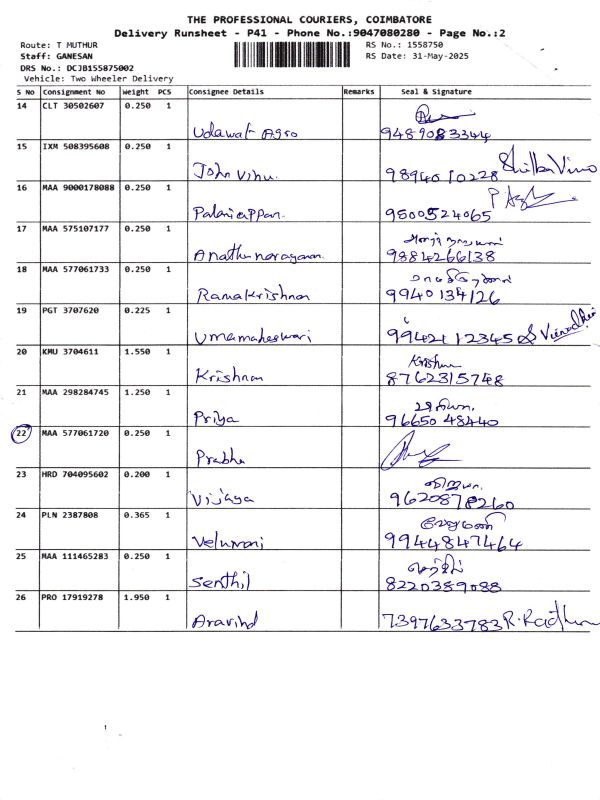 THE PROFESSIONAL COURIERS, COIMBATORE
Delivery Runsheet - P41 - Phone No.:9047080280 - Page No.:2
Route: T MUTHUR RS No.: 1558750
Staff: GANESAN RS Date: 31-May-2025
DRS No.: DCJB155875002
Vehicle: Two Wheeler Delivery
S No Consignment No Weight PCS Consignee Details Remarks Seal & Signature
14 CLT 30502607 0.250 1
Udawat Agro 9489083344
15 IXM 508395608 0.250 1
John Vinu. 9894010228
16 MAA 9000178088 0.250 1
Palaniappan. 9500524065
17 MAA 575107177 0.250 1
Anathanarayanan 9884266138
18 MAA 577061733 0.250 1
Ramakrishnan 9940134126
19 PGT 3707620 0.225 1
Umamaheswari 9942112345
20 KMU 3704611 1.550 1 Krishna
Krishnan 8762315748
21 MAA 298284745 1.250 1
Priya 9665048440
22 MAA 577061720 0.250 1
Prabhu
23 HRD 704095602 0.200 1
Vijaya 9620878260
24 PLN 2387808 0.365 1 வேலுமணி
Velumani 9944847464
25 MAA 111465283 0.250 1
Senthil 8220359088
26 PRO 17919278 1.950 1
Aravind 7397633783